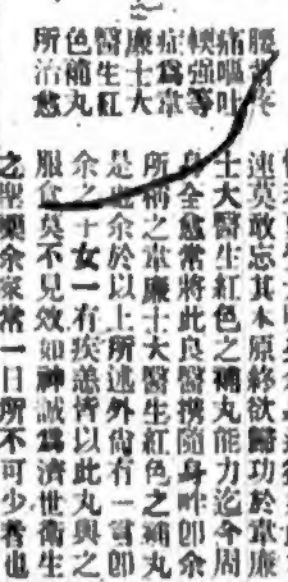 腰背疼
痛嘔吐
輭强等
症爲韋
廉士大
醫生紅
色補丸
所治愈
速莫敢忘其本原終欲歸功於韋廉
士大醫生紅色之補丸能力迄今周
身全愈常將此良醫攜隨身畔卽余
所稱之韋廉士大醫生紅色之補丸
是也余於以上所述外尙有一言卽
余之子女一有疾恙皆以此丸與之
服食莫不見效如神誠爲濟世衛生
之聖藥余家常一日所不可少者也